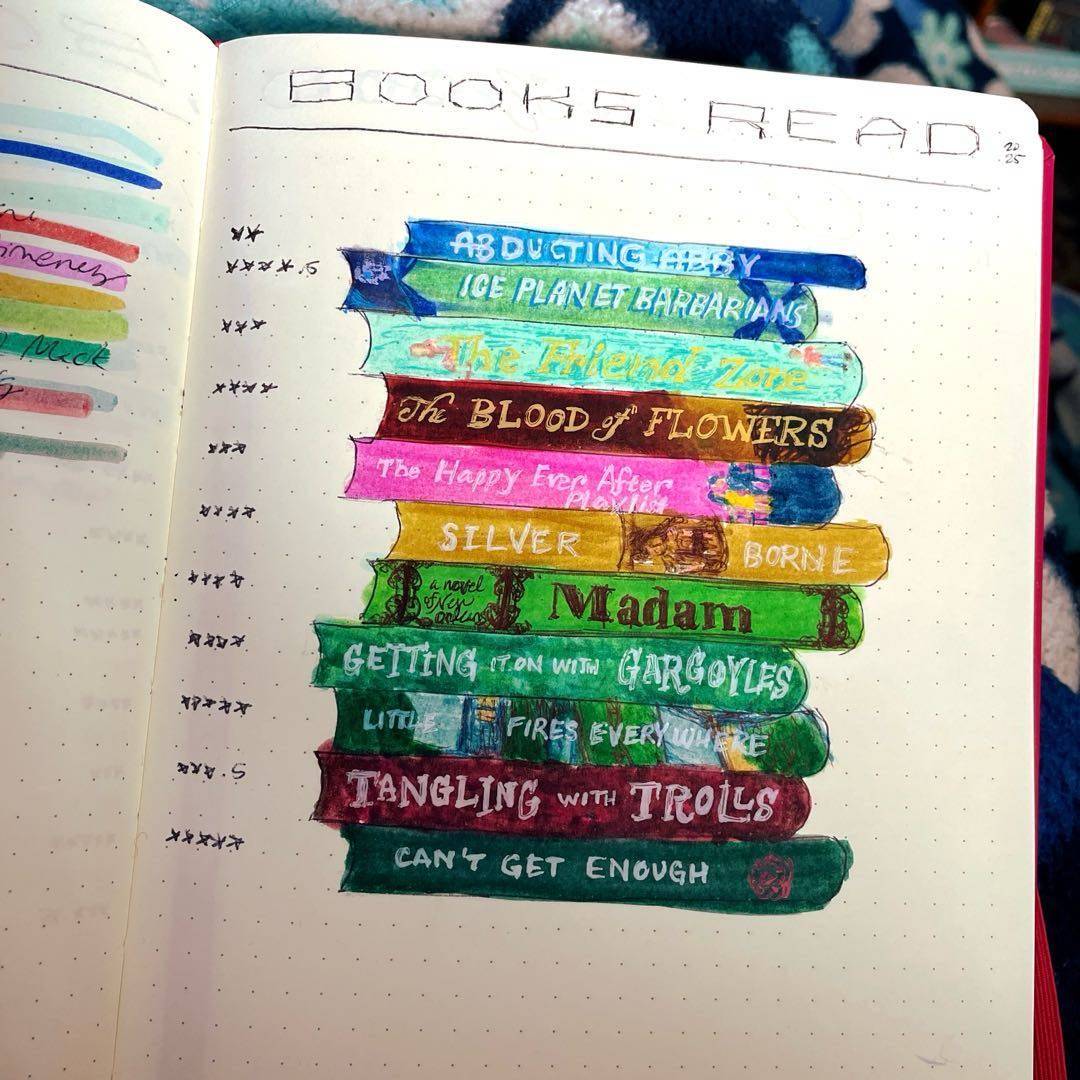 BOOKS READ
20
25
ABDUCTING ABBY
ICE PLANET BARBARIANS
.5
The Friend Zone
The BLOOD of FLOWERS
The Happy Ever After
Playlist
SILVER BORNE
a novel
Madam
GETTING IT ON WITH GARGOYLES
LITTLE FIRES EVERYWHERE
.5
TANGLING WITH TROLLS
CAN'T GET ENOUGH